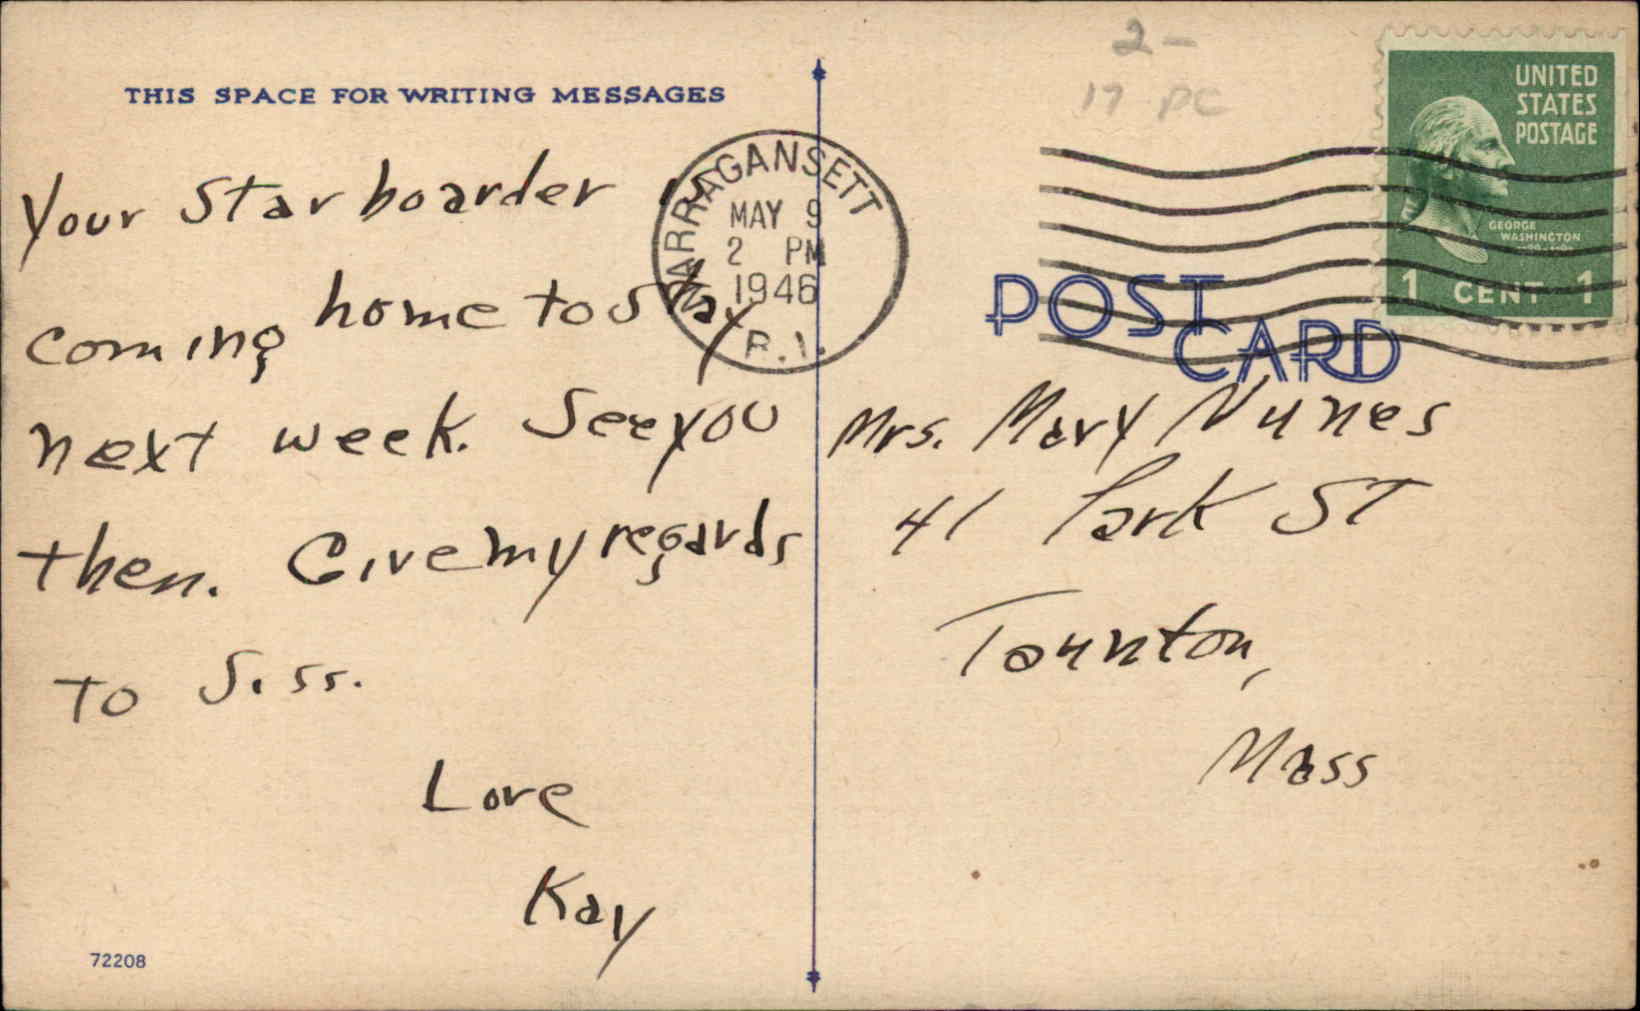 2 -
17 PC
THIS SPACE FOR WRITING MESSAGES
UNITED
STATES
POSTAGE
GEORGE
WASHINGTON
1 CENT 1
NARRAGANSETT
MAY 9
2 PM
1946
R.I.
POST
CARD
Your Star boarder is
coming home to stay
next week. See you
then. Give my regards
to Siss.
Love
Kay
Mrs. Mary Nunes
41 Park St
Taunton,
Mass
72208